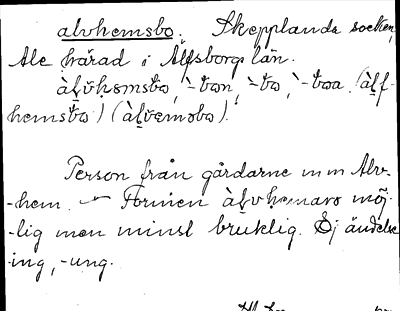 alvhemsbo. Skepplanda socken,
Ale härad i Älfsborgs län.
àḷvhɘmsbo, -bon, -bo, -boa. (àḷf-
hemsbo) (àḷvemsbo).
Person från gårdarne m m Alv-
-hem. — Formen àḷvhemaro möj-
-lig men minst bruklig. Ej ändelse
-ing, -ung.